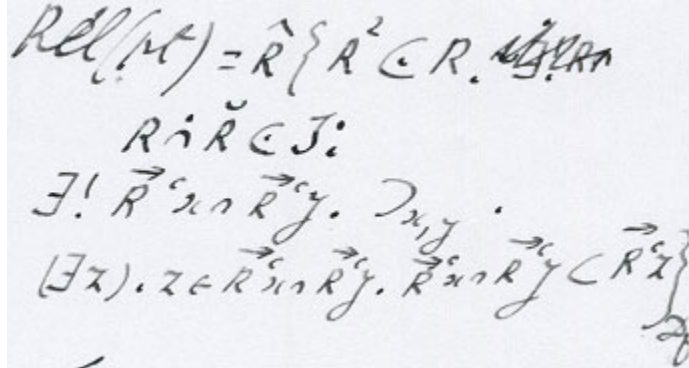 Rel(pt) = R̂{R² ⊂· R.
R ∩· R̆ ⊂· J:
∃! R⃗‘x ∩ R⃗‘y. ⊃x,y .
(∃z). z ∈ R⃗‘x ∩ R⃗‘y. R⃗‘x ∩ R⃗‘y ⊂ R⃗‘z}